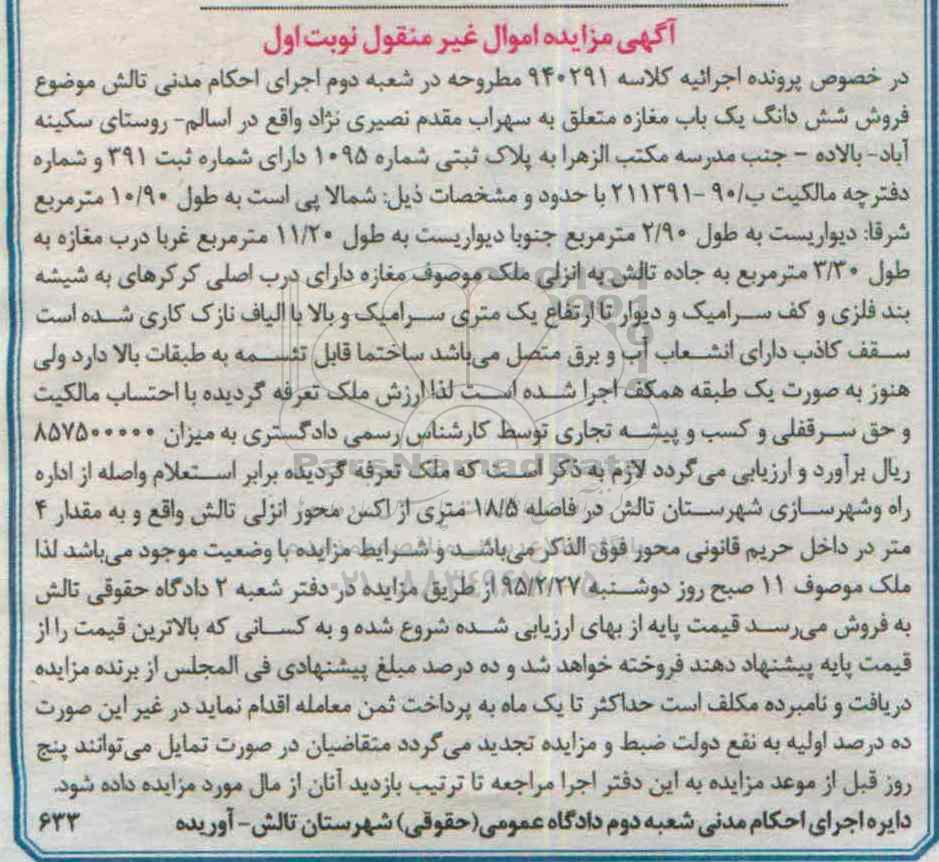 آگهی مزایده اموال غیر منقول نوبت اول
در خصوص پرونده اجرائیه کلاسه ۹۴۰۲۹۱ مطروحه در شعبه دوم اجرای احکام مدنی تالش موضوع
فروش شش دانگ یک باب مغازه متعلق به سهراب مقدم نصیری نژاد واقع در اسالم- روستای سکینه
آباد- بالاده – جنب مدرسه مکتب الزهرا به پلاک ثبتی شماره ۱۰۹۵ دارای شماره ثبت ۳۹۱ و شماره
دفترچه مالکیت ب/۹۰ -۲۱۱۳۹۱ با حدود و مشخصات ذیل: شمالا پی است به طول ۱۰/۹۰ مترمربع
شرقا: دیواریست به طول ۲/۹۰ مترمربع جنوبا دیواریست به طول ۱۱/۲۰ مترمربع غربا درب مغازه به
طول ۳/۳۰ مترمربع به جاده تالش به انزلی ملک موصوف مغازه دارای درب اصلی کرکرهای به شیشه
بند فلزی و کف سرامیک و دیوار تا ارتفاع یک متری سرامیک و بالا با الیاف نازک کاری شده است
سقف کاذب دارای انشعاب آب و برق متصل می‌باشد ساختما قابل تئسمه به طبقات بالا دارد ولی
هنوز به صورت یک طبقه همکف اجرا شده است لذا ارزش ملک تعرفه گردیده با احتساب مالکیت
و حق سرقفلی و کسب و پیشه تجاری توسط کارشناس رسمی دادگستری به میزان ۸۵۷۵۰۰۰۰۰
ریال برآورد و ارزیابی می‌گردد لازم به ذکر است که ملک تعرفه گردیده برابر استعلام واصله از اداره
راه وشهرسازی شهرستان تالش در فاصله ۱۸/۵ متری از اکس محور انزلی تالش واقع و به مقدار ۴
متر در داخل حریم قانونی محور فوق الذکر می‌باشد و شرایط مزایده با وضعیت موجود می‌باشد لذا
ملک موصوف ۱۱ صبح روز دوشنبه ۹۵/۲/۲۷ از طریق مزایده در دفتر شعبه ۲ دادگاه حقوقی تالش
به فروش می‌رسد قیمت پایه از بهای ارزیابی شده شروع شده و به کسانی که بالاترین قیمت را از
قیمت پایه پیشنهاد دهند فروخته خواهد شد و ده درصد مبلغ پیشنهادی فی المجلس از برنده مزایده
دریافت و نامبرده مکلف است حداکثر تا یک ماه به پرداخت ثمن معامله اقدام نماید در غیر این صورت
ده درصد اولیه به نفع دولت ضبط و مزایده تجدید می‌گردد متقاضیان در صورت تمایل می‌توانند پنج
روز قبل از موعد مزایده به این دفتر اجرا مراجعه تا ترتیب بازدید آنان از مال مورد مزایده داده شود.
دایره اجرای احکام مدنی شعبه دوم دادگاه عمومی(حقوقی) شهرستان تالش- آوریده ۶۳۳
ParsNamadData